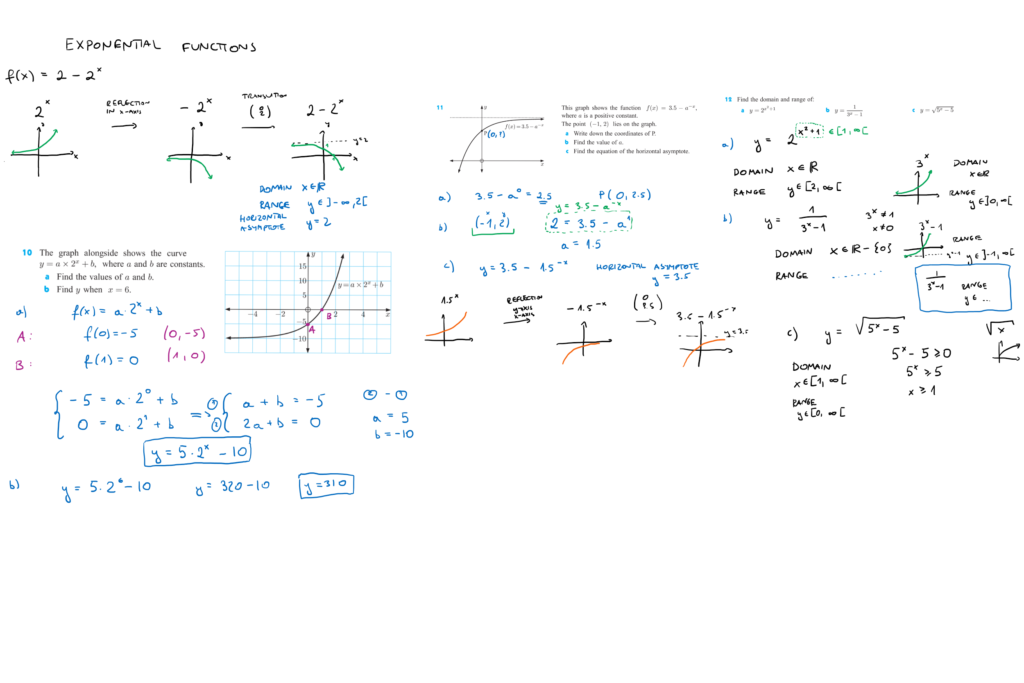 EXPONENTIAL FUNCTIONS
f(x) = 2 - 2^x
2^x
REFLECTION IN X-AXIS
- 2^x
TRANSLATION
(0 2)
2 - 2^x
y
x
y
x
y
x
y=2
DOMAIN x∈R
RANGE y∈]-∞,2[
HORIZONTAL ASYMPTOTE y=2
10 The graph alongside shows the curve
y = a × 2^x + b, where a and b are constants.
a Find the values of a and b.
b Find y when x = 6.
y
15
10
5
y = a × 2^x + b
-4 -2 2 4 x
-5
-10
A
B
a) f(x) = a 2^x + b
A: f(0) = -5 (0, -5)
B: f(1) = 0 (1, 0)
-5 = a · 2^0 + b => ① a + b = -5
0 = a · 2^1 + b ② 2a + b = 0
② - ①
a = 5
b = -10
y = 5 · 2^x - 10
b) y = 5 · 2^6 - 10 y = 320 - 10 y = 310
11
y
f(x) = 3.5 - a^-x
P(0,?)
x
This graph shows the function f(x) = 3.5 - a^-x,
where a is a positive constant.
The point (-1, 2) lies on the graph.
a Write down the coordinates of P.
b Find the value of a.
c Find the equation of the horizontal asymptote.
a) 3.5 - a^0 = 2.5 P(0, 2.5)
y = 3.5 - a^-x
b) (-1, 2) 2 = 3.5 - a^1
x y
a = 1.5
c) y = 3.5 - 1.5^-x HORIZONTAL ASYMPTOTE
y = 3.5
1.5^x
REFLECTION
y-AXIS
x-AXIS
- 1.5^-x
(0 3.5)
3.5 - 1.5^-x
y=3.5
12 Find the domain and range of:
a y = 2^(x²+1) b y = 1/(3^x - 1) c y = √(5^x - 5)
a) y = 2^(x²+1) ∈[1,∞[
DOMAIN x∈R
RANGE y∈[2,∞[
3^x
DOMAIN
x∈R
RANGE
y∈]0,∞[
b) y = 1/(3^x - 1) 3^x ≠ 1
x ≠ 0
3^x - 1
RANGE
y∈]-1,∞[
DOMAIN x∈R-{0}
RANGE .......
1/(3^x - 1) RANGE
y∈ ...
c) y = √(5^x - 5)
√x
5^x - 5 ≥ 0
5^x ≥ 5
x ≥ 1
DOMAIN
x∈[1,∞[
RANGE
y∈[0,∞[